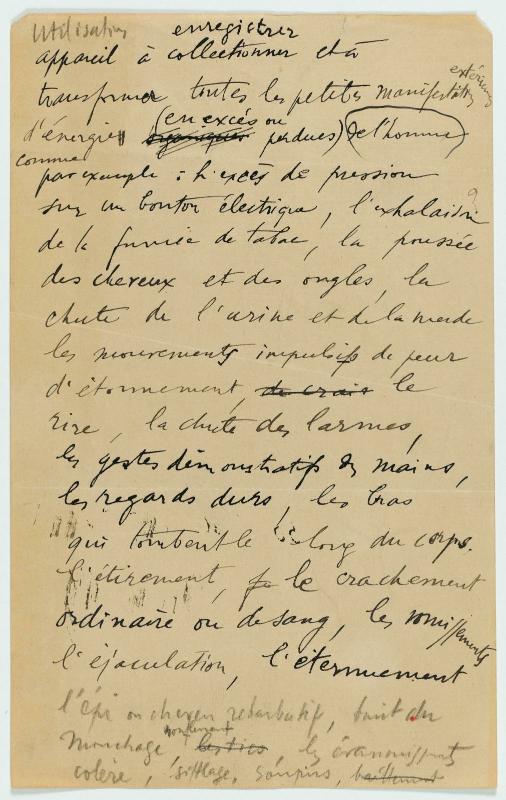 Utilisation
enregistrer
appareil à collectionner et à
transformer toutes les petites manifestations extérieures
d'énergie (en excès ou
organiques perdues) de l'homme
comme
par exemple : l'excès de pression
sur un bouton électrique, l'exhalaison
de la fumée de tabac, la poussée
des cheveux et des ongles, la
chute de l'urine et de la merde
les mouvements impulsifs de peur
d'étonnement, de crais le
rire, la chute des larmes,
les gestes démonstratifs des mains,
les regards durs, les bras
qui tombent le long du corps.
l'étirement, le crachement
ordinaire ou de sang, les vomissements
l'éjaculation, l'éternuement
l'épi ou cheveu rébarbatif, bruit du
mouchage ronflement les tics, les évanouissements
colère, sifflage, soupirs, baillement